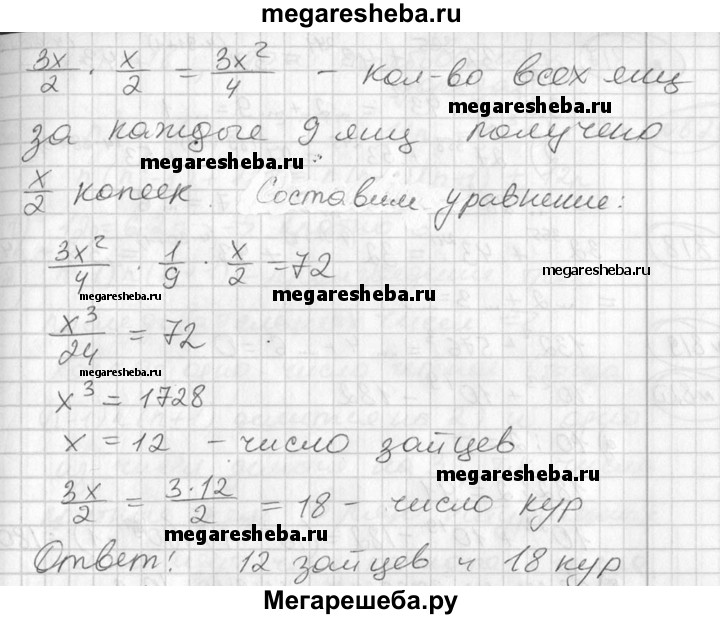 megaresheba.ru
3x/2 · x/2 = 3x²/4 - кол-во всех яиц
megaresheba.ru
за каждые 9 яиц получено
megaresheba.ru
x/2 копеек. Составим уравнение:
3x²/4 · 1/9 · x/2 = 72
megaresheba.ru
megaresheba.ru
megaresheba.ru
x³/24 = 72
megaresheba.ru
x³ = 1728
x = 12 - число зайцев
megaresheba.ru
3x/2 = 3·12/2 = 18 - число кур
megaresheba.ru
Ответ! 12 зайцев и 18 кур
Мегарешеба.ру